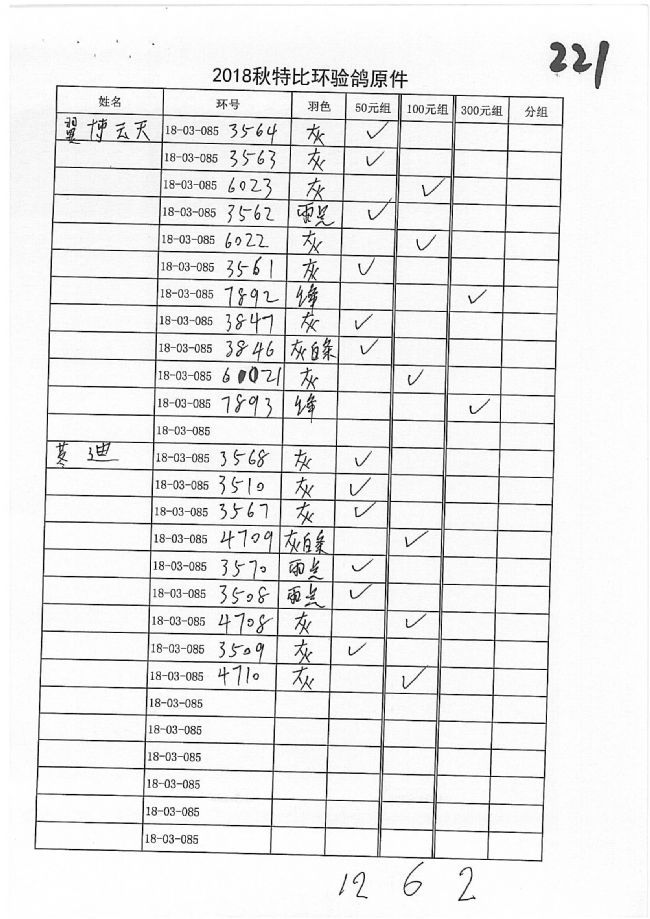 221
2018秋特比环验鸽原件
姓名 环号 羽色 50元组 100元组 300元组 分组
翼博云天 18-03-085 3564 灰 ✓
18-03-085 3563 灰 ✓
18-03-085 6023 灰 ✓
18-03-085 3562 雨点 ✓
18-03-085 6022 灰 ✓
18-03-085 3561 灰 ✓
18-03-085 7892 绛 ✓
18-03-085 3847 灰 ✓
18-03-085 3846 灰白条 ✓
18-03-085 6021 灰 ✓
18-03-085 7893 绛 ✓
18-03-085
迪 18-03-085 3568 灰 ✓
18-03-085 3510 灰 ✓
18-03-085 3567 灰 ✓
18-03-085 4709 灰白条 ✓
18-03-085 3570 雨点 ✓
18-03-085 3508 雨点 ✓
18-03-085 4708 灰 ✓
18-03-085 3509 灰 ✓
18-03-085 4710 灰 ✓
18-03-085
18-03-085
18-03-085
18-03-085
18-03-085
18-03-085
12 6 2